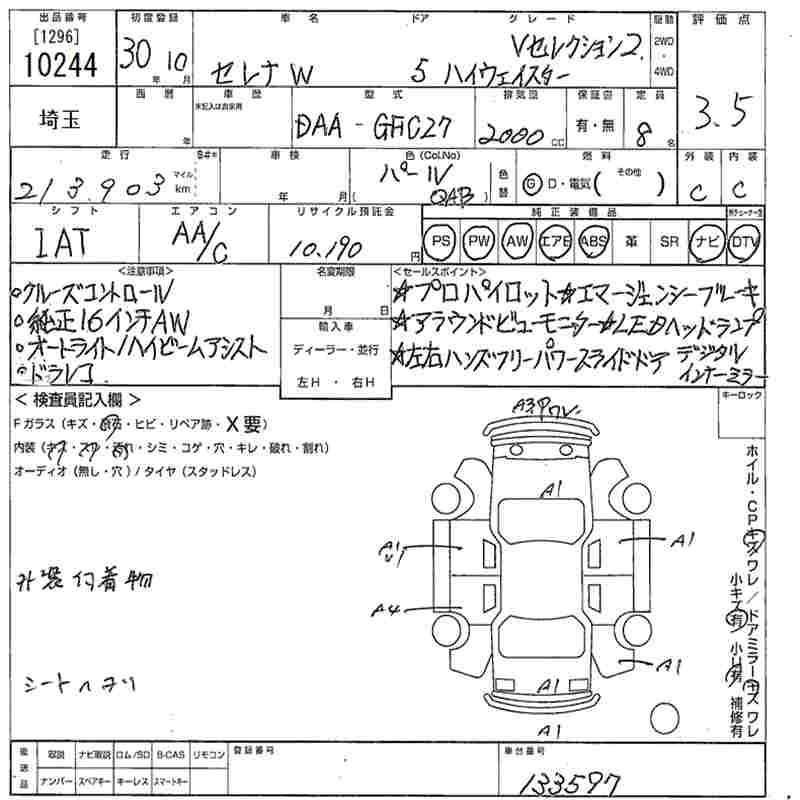 出品番号 初度登録 車名 ドア グレード 駆動 評価点
[1296] 10244 30 年 10 月 セレナW 5 Vセレクション2. ハイウェイスター 2WD ・ 4WD 3.5
埼玉 西暦 年 車歴 未記入は自家用 型式 DAA-GFC27 排気量 2000 CC 保証書 有・無 定員 8 名
走行 213.903 マイル km S#* 車検 年 月 色(Col.No) パール (QAB) 色替 燃料 G D・電気( その他 ) 外装 C 内装 C
シフト IAT エアコン AA/C リサイクル預託金 10.190 円 純正装備品 PS PW AW エアB ABS 革 SR ナビ DTV
<注意事項>
○クルーズコントロール
○純正16インチAW
○オートライト/ハイビームアシスト
○ドラレコ
名変期限
月 日
輸入車
ディーラー・並行
左H ・ 右H
<セールスポイント>
☆プロパイロット☆エマージェンシーブレーキ
☆アラウンドビューモニター☆LEDヘッドランプ
☆左右ハンズフリーパワースライドドア デジタルインナーミラー
< 検査員記入欄 >
Fガラス(キズ・飛石・ヒビ・リペア跡・X要)
内装(キズ・スレ・汚れ・シミ・コゲ・穴・キレ・破れ・割れ)
オーディオ(無し・穴)/タイヤ(スタッドレス)
外装付着物
シートヘタリ
キーロック
A3 P ワレ
A1
A1
U1
A1
A4
A1
A1
A1
ホイル・CPキズワレ/ドアミラーキズワレ
小キズ有 小凹有 補修有
後送品 取説 ナビ取説 ロム/SD B-CAS リモコン 登録番号 車台番号
ナンバー スペアキー キーレス スマートキー 133597